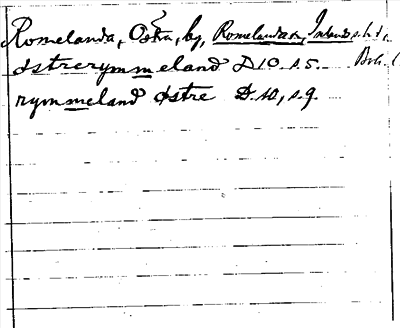 Romelanda, Östra, by, Romelanda sn, Inlands
østrerymmeland D 10. s. 5. Boh.
rymmeland østre D. 10, s. 9.